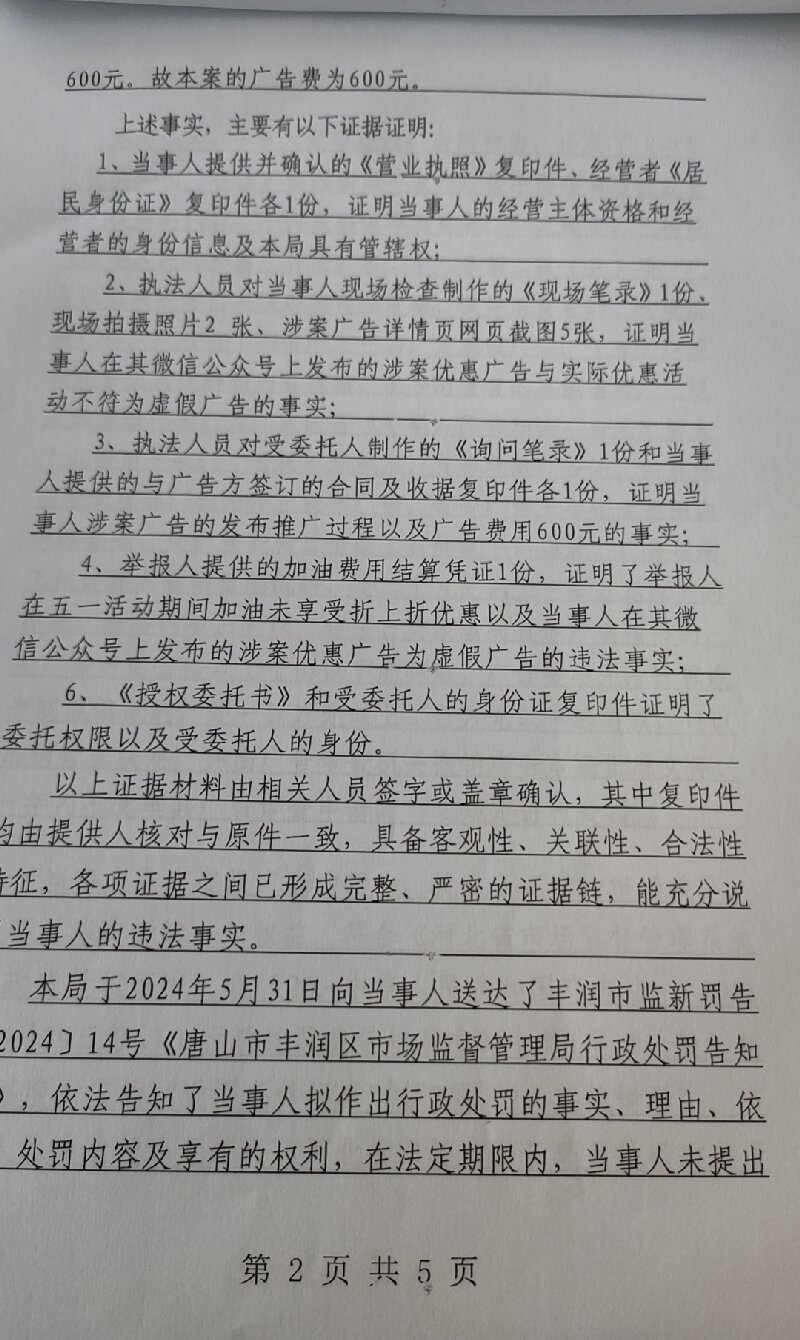 600元。故本案的广告费为600元。
上述事实，主要有以下证据证明：
1、当事人提供并确认的《营业执照》复印件、经营者《居
民身份证》复印件各1份，证明当事人的经营主体资格和经
营者的身份信息及本局具有管辖权；
2、执法人员对当事人现场检查制作的《现场笔录》1份、
现场拍摄照片2 张、涉案广告详情页网页截图5张，证明当
事人在其微信公众号上发布的涉案优惠广告与实际优惠活
动不符为虚假广告的事实；
3、执法人员对受委托人制作的《询问笔录》1份和当事
人提供的与广告方签订的合同及收据复印件各1份，证明当
事人涉案广告的发布推广过程以及广告费用600元的事实；
4、举报人提供的加油费用结算凭证1份，证明了举报人
在五一活动期间加油未享受折上折优惠以及当事人在其微
信公众号上发布的涉案优惠广告为虚假广告的违法事实；
6、《授权委托书》和受委托人的身份证复印件证明了
委托权限以及受委托人的身份。
以上证据材料由相关人员签字或盖章确认，其中复印件
均由提供人核对与原件一致，具备客观性、关联性、合法性
特征，各项证据之间已形成完整、严密的证据链，能充分说
当事人的违法事实。
本局于2024年5月31日向当事人送达了丰润市监新罚告
2024〕14号《唐山市丰润区市场监督管理局行政处罚告知
》，依法告知了当事人拟作出行政处罚的事实、理由、依
处罚内容及享有的权利，在法定期限内，当事人未提出
第 2 页 共 5 页